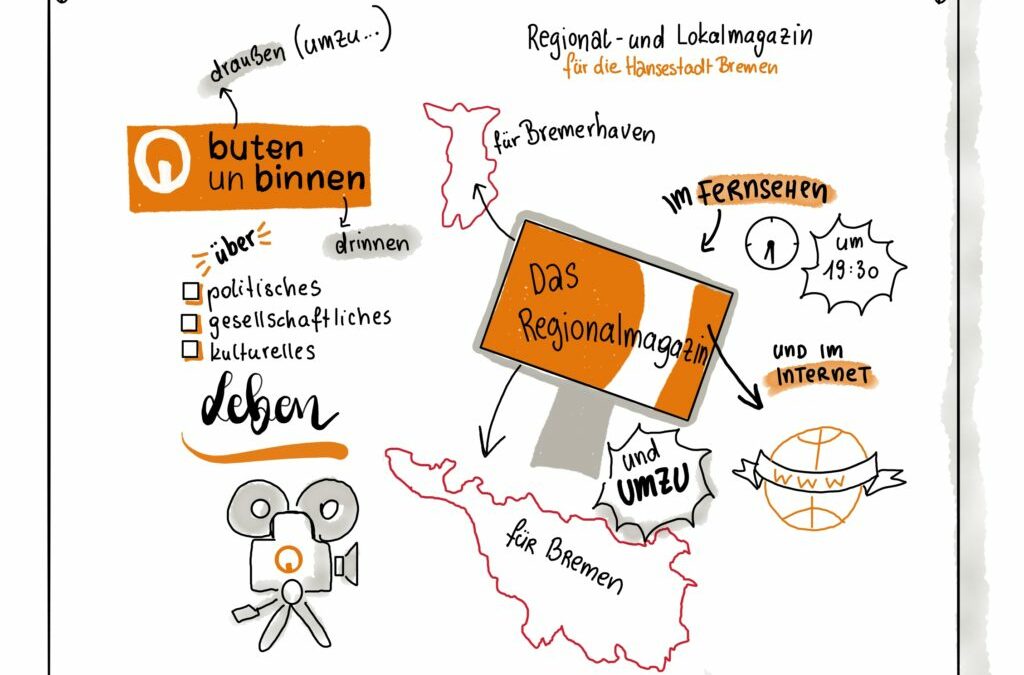 draußen (umzu...)
buten
un binnen
drinnen
über
politisches
gesellschaftliches
kulturelles
Leben
Regional- und Lokalmagazin
für die Hansestadt Bremen
für Bremerhaven
im FERNSEHEN
um
19:30
Das
Regionalmagazin
UND IM
INTERNET
WWW
und
UMZU
für Bremen